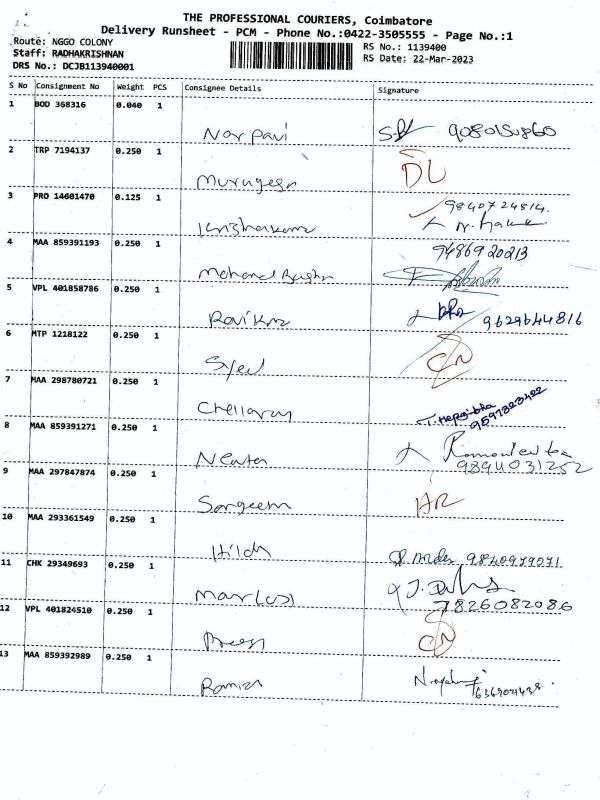 THE PROFESSIONAL COURIERS, Coimbatore
Delivery Runsheet - PCM - Phone No.:0422-3505555 - Page No.:1
Route: NGGO COLONY
Staff: RADHAKRISHNAN
DRS No.: DCJB113940001
RS No.: 1139400
RS Date: 22-Mar-2023
S No Consignment No Weight PCS Consignee Details Signature
1 BOD 368316 0.040 1
Nar pavi 9080150860
2 TRP 7194137 0.250 1
Murugesn DL
3 PRO 14601470 0.125 1
9840724814.
Krishnakumr
4 MAA 859391193 0.250 1
9486920213
5 VPL 401858786 0.250 1
Ravikmr 9629644816
6 MTP 1218122 0.250 1
Syed CN
7 MAA 298780721 0.250 1
Chellaray 9597323422
8 MAA 859391271 0.250 1
Newton
9894031252
9 MAA 297847874 0.250 1
Sangeem AR
10 MAA 293361549 0.250 1
Hildh 9840979071.
11 CHK 29349693 0.250 1
Marcus
7826082086
12 VPL 401824510 0.250 1
Preesn CN
13 MAA 859392989 0.250 1
Ramiza